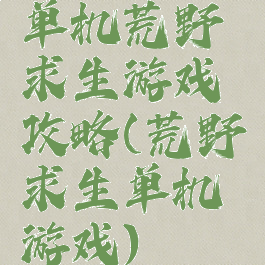 单机荒野
求生游戏
攻略(荒野
求生单机
游戏)